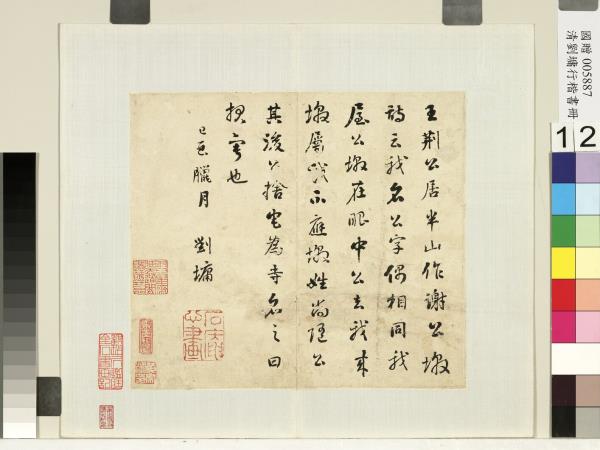 國贈 005887
清劉墉行楷書冊
12
王荊公居半山作謝公墩
詩云我名公字偶相同我
屋公墩在眼中公去我來
墩屬我不應墩姓尚隨公
其後公捨宅為寺名之曰
報寧也
己酉臘月 劉墉